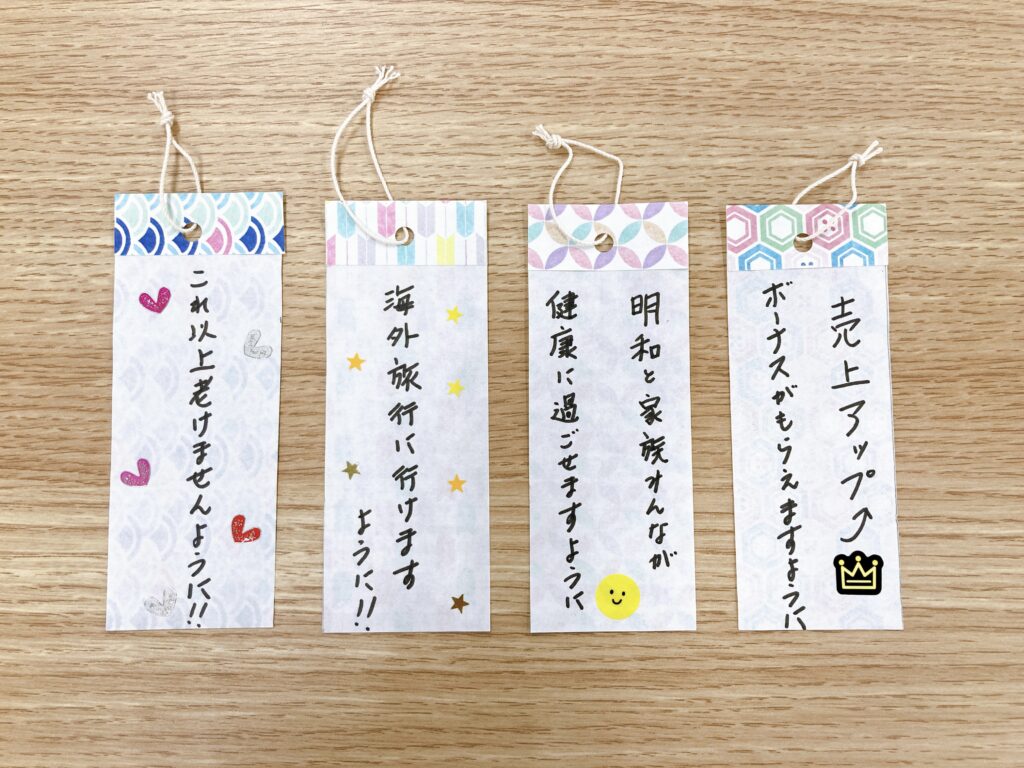 これ以上老けませんように!!
海外旅行に行けます
ように!!
明和と家族みんなが
健康に過ごせますように
売上アップ↗
ボーナスがもらえますように